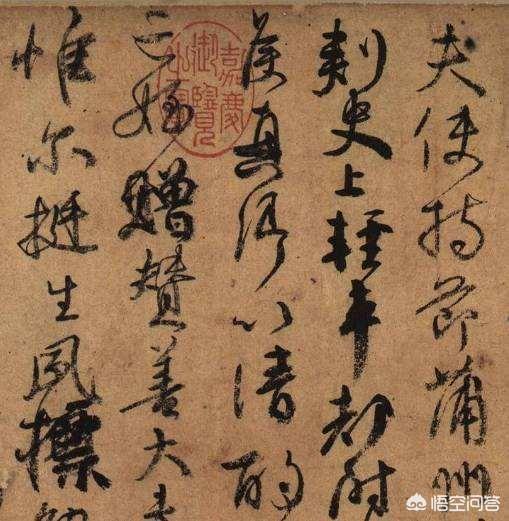 夫使持節蒲州
刺史上輕車都尉
侯真卿以清酌
亡姪贈賛善大夫
惟尔挺生夙標
嘉慶御覽之寶
悟空问答